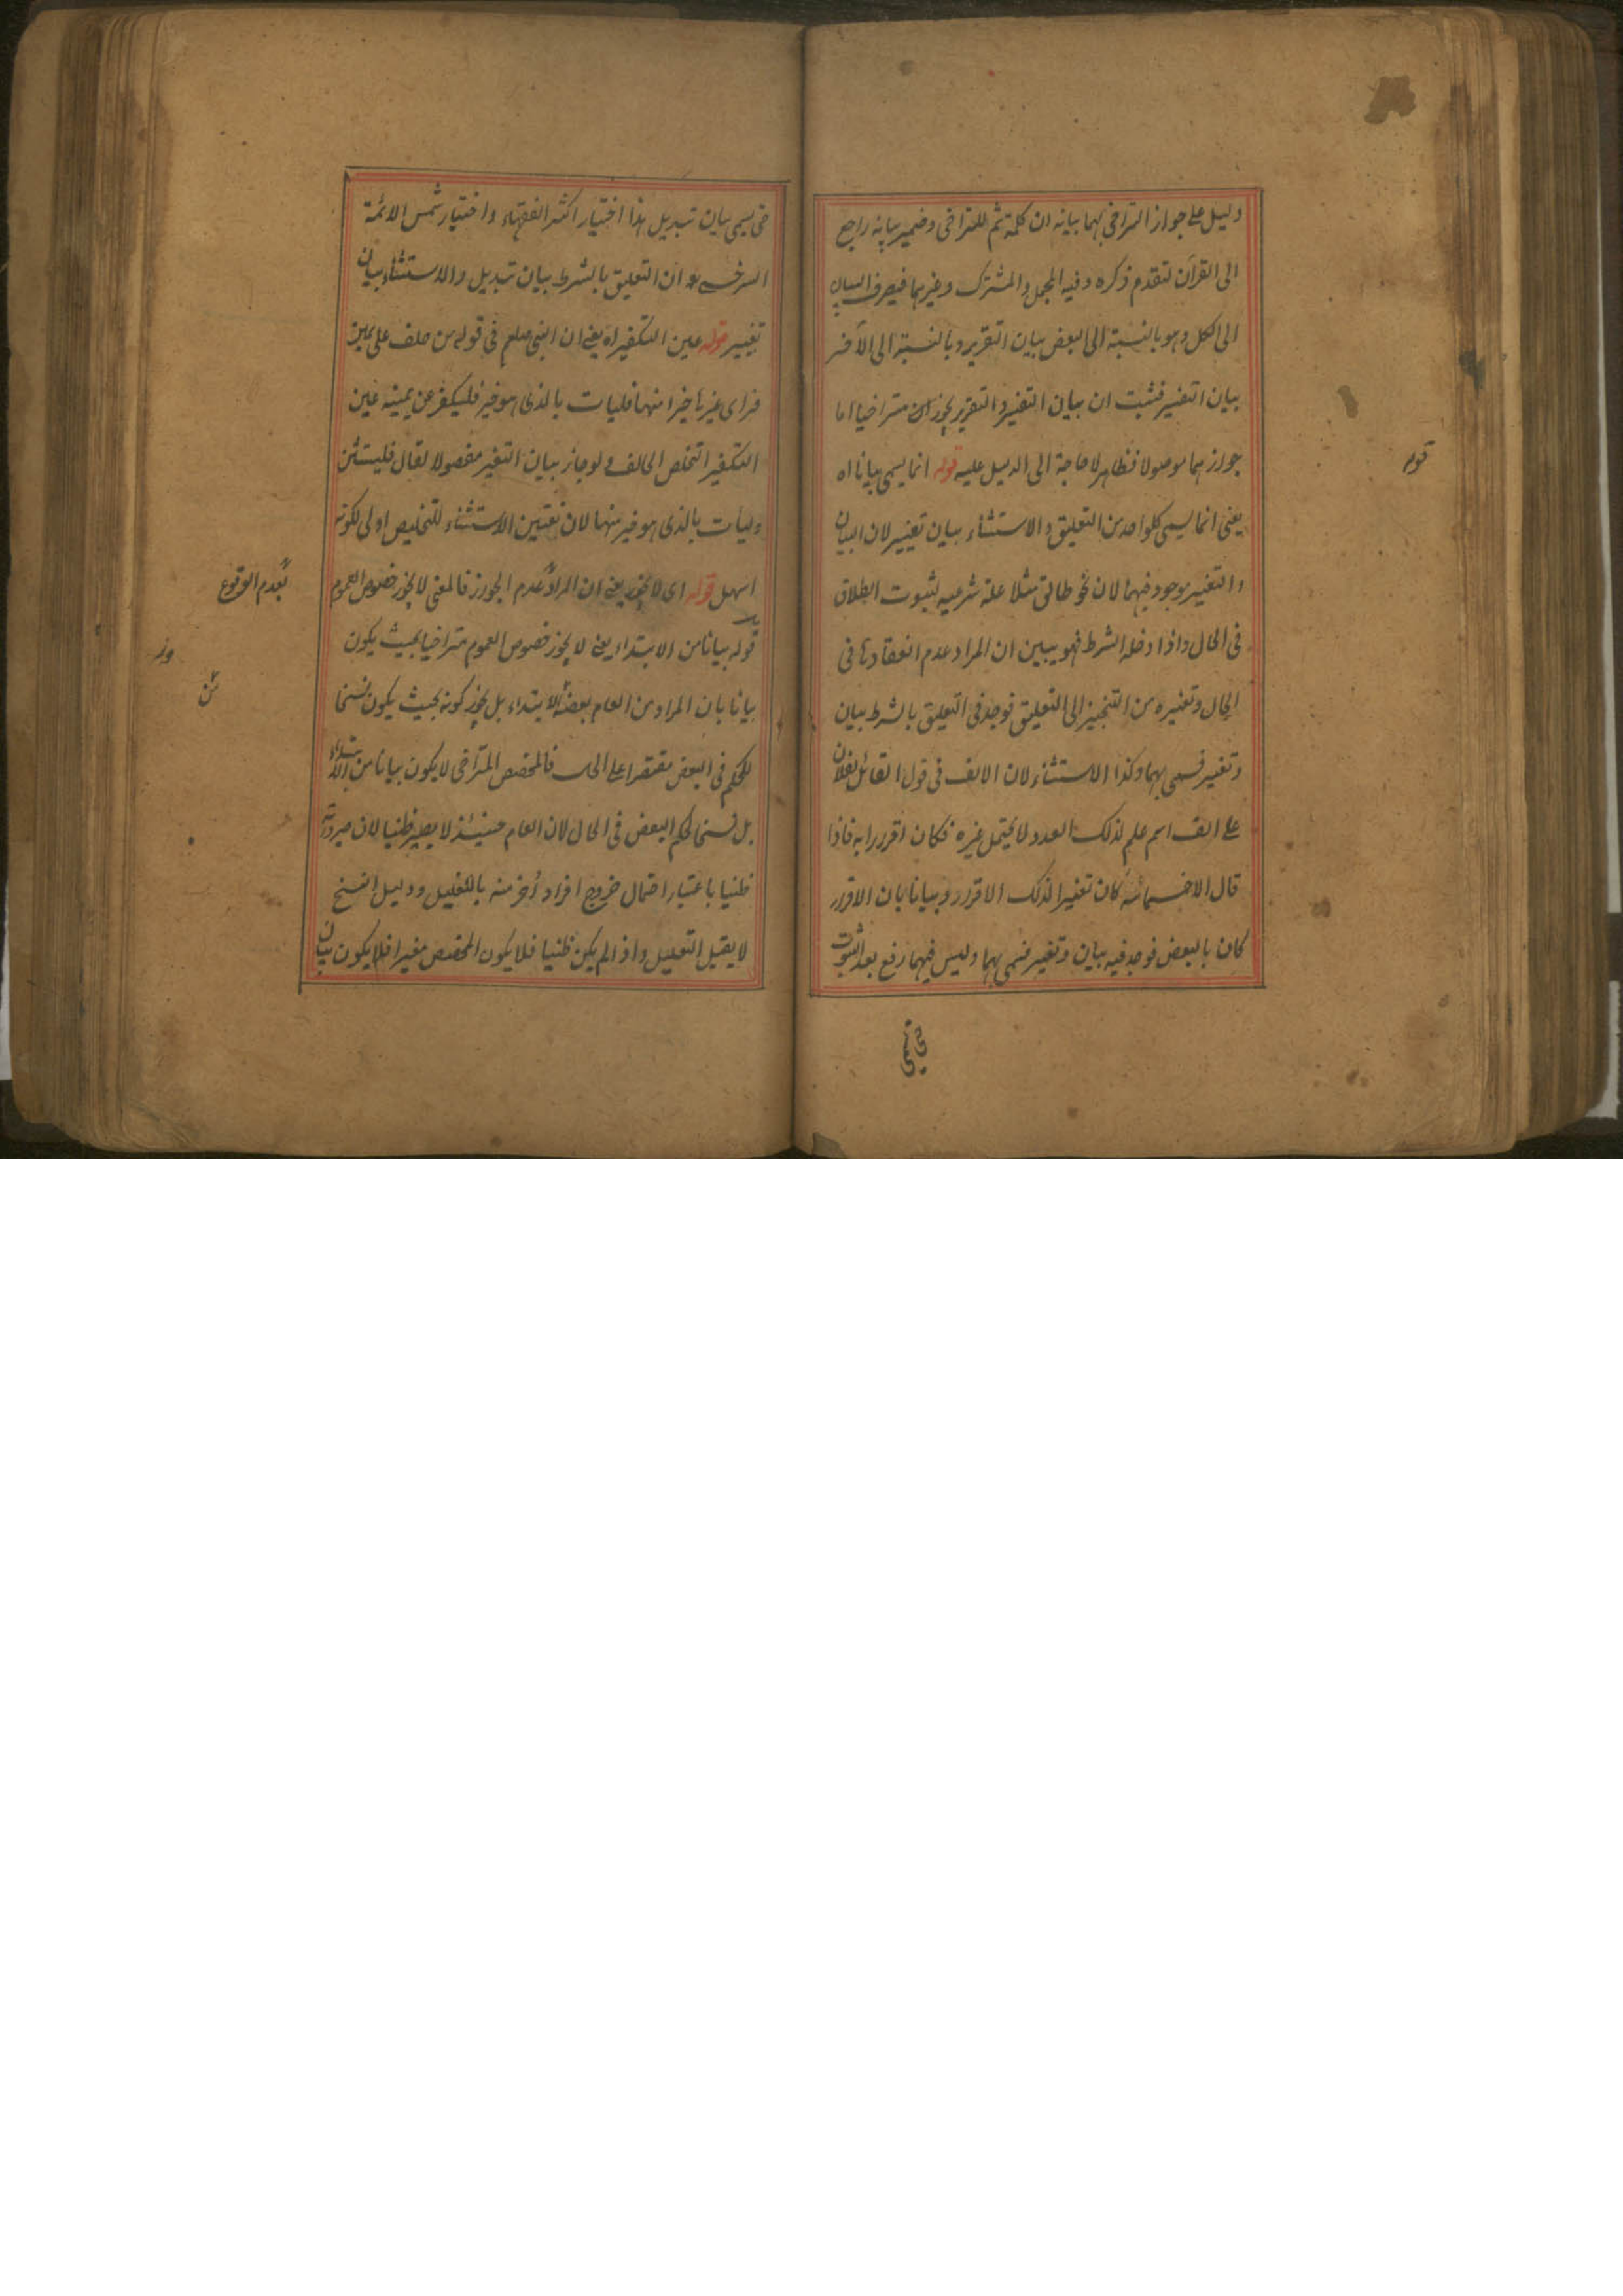 دليل على جواز التراخى بهما بيانه ان كلمة ثم للتراخى وضمير بيانه راجع
الى القرآن لتقدم ذكره وفيه المجمل والمشترك وغيرهما فيصرف البيان
الى الكل وهو بالنسبة الى البعض بيان التقرير وبالنسبة الى الآخر
بيان التفسير فثبت ان بيان التفسير والتقرير يجوز ان متراخيا اما
جوازهما موصولا فظاهر لا حاجة الى الدليل عليه قوله انما يسمى بيانا اه
يعنى انما يسمى كلواحد من التعليق والاستثناء بيان تغيير لان البيان
والتغيير موجود فيهما لان نحو طالق مثلا علة شرعيه لثبوت الطلاق
فى الحال واذا دخله الشرط فهو يبين ان المراد عدم انعقادها فى
الحال وتغيره من التنجيز الى التعليق فوجد فى التعليق بالشرط بيان
وتغيير فسمى بهما وكذا الاستثناء لان الالف فى قول القائل لفلان
على الف اسم علم لذلك العدد لا يحتمل غيره فكان اقرارا به فاذا
قال الا خمسمائة كان تغييرا لذلك الاقرار وبيانا بان الاقرار
كان بالبعض فوجد فيه بيان وتغيير فسمى بهما وليس فيهما رفع بعد الثبوت
قوله
حتى يسمى
حتى يسمى بيان تبديل هذا اختيار اكثر الفقهاء واختيار شمس الائمة
السرخسى ان التعليق بالشرط بيان تبديل والاستثناء بيان
تغيير قوله عين التكفير اه يعنى ان النبى صلعم فى قوله من حلف على يمين
فراى غيرها خيرا منها فليات بالذى هو خير فليكفر عن يمينه عين
التكفير لتخلص الحالف ولو جاز بيان التغير مفصولا لقال فليستثن
وليأت بالذى هو خير منها لان تعيين الاستثناء للتخليص اولى لكونه
اسهل قوله اى لا يجوز يعنى ان المراد عدم الجواز فالمعنى لا يجوز خصوص العموم
قوله بيانا من الابتداء يعنى لا يجوز خصوص العموم متراخيا بحيث يكون
بيانا بان المراد من العام بعضه الابتداء بل يجوز كونه بحيث يكون نسخا
للحكم فى البعض مقتصرا على الحال فالمخصص المتراخى لا يكون بيانا من الابتداء
بل نسخا لحكم البعض فى الحال لان العام حينئذ لا يصير ظنيا لان صيرورته
ظنيا باعتبار احتمال خروج افراد أخر منه بالتعليل ودليل النسخ
لا يقبل التعليل واذا لم يكن ظنيا فلا يكون المخصص مغيرا فلا يكون بيان
بعدم الوقوع
من